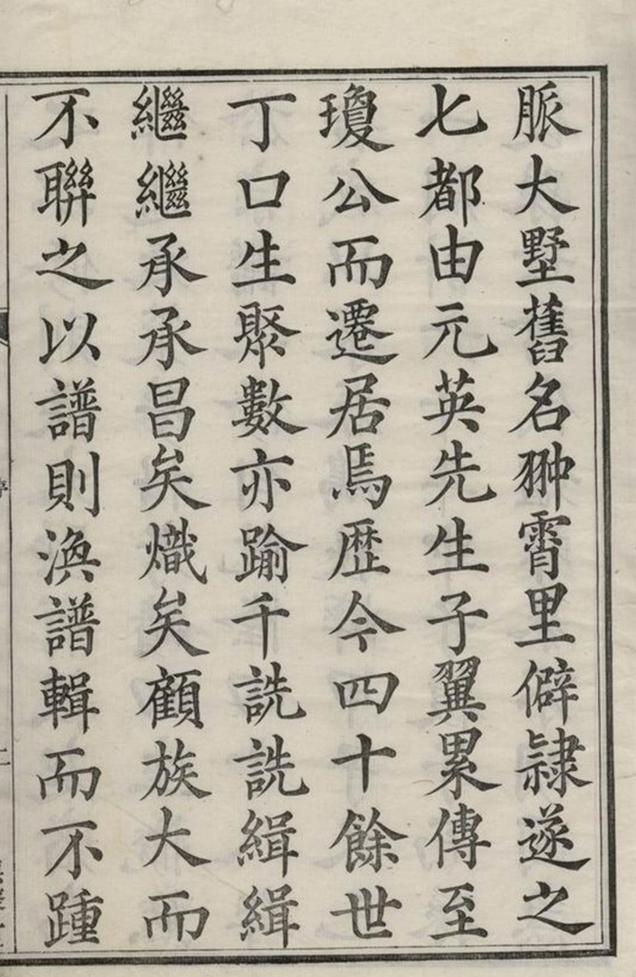 脈大墅舊名翀霄里僻隷遂之
七都由元英先生子翼累傳至
瓊公而遷居焉歴今四十餘世
丁口生聚數亦踰千詵詵緝緝
繼繼承承昌矣熾矣顧族大而
不聯之以譜則渙譜輯而不踵